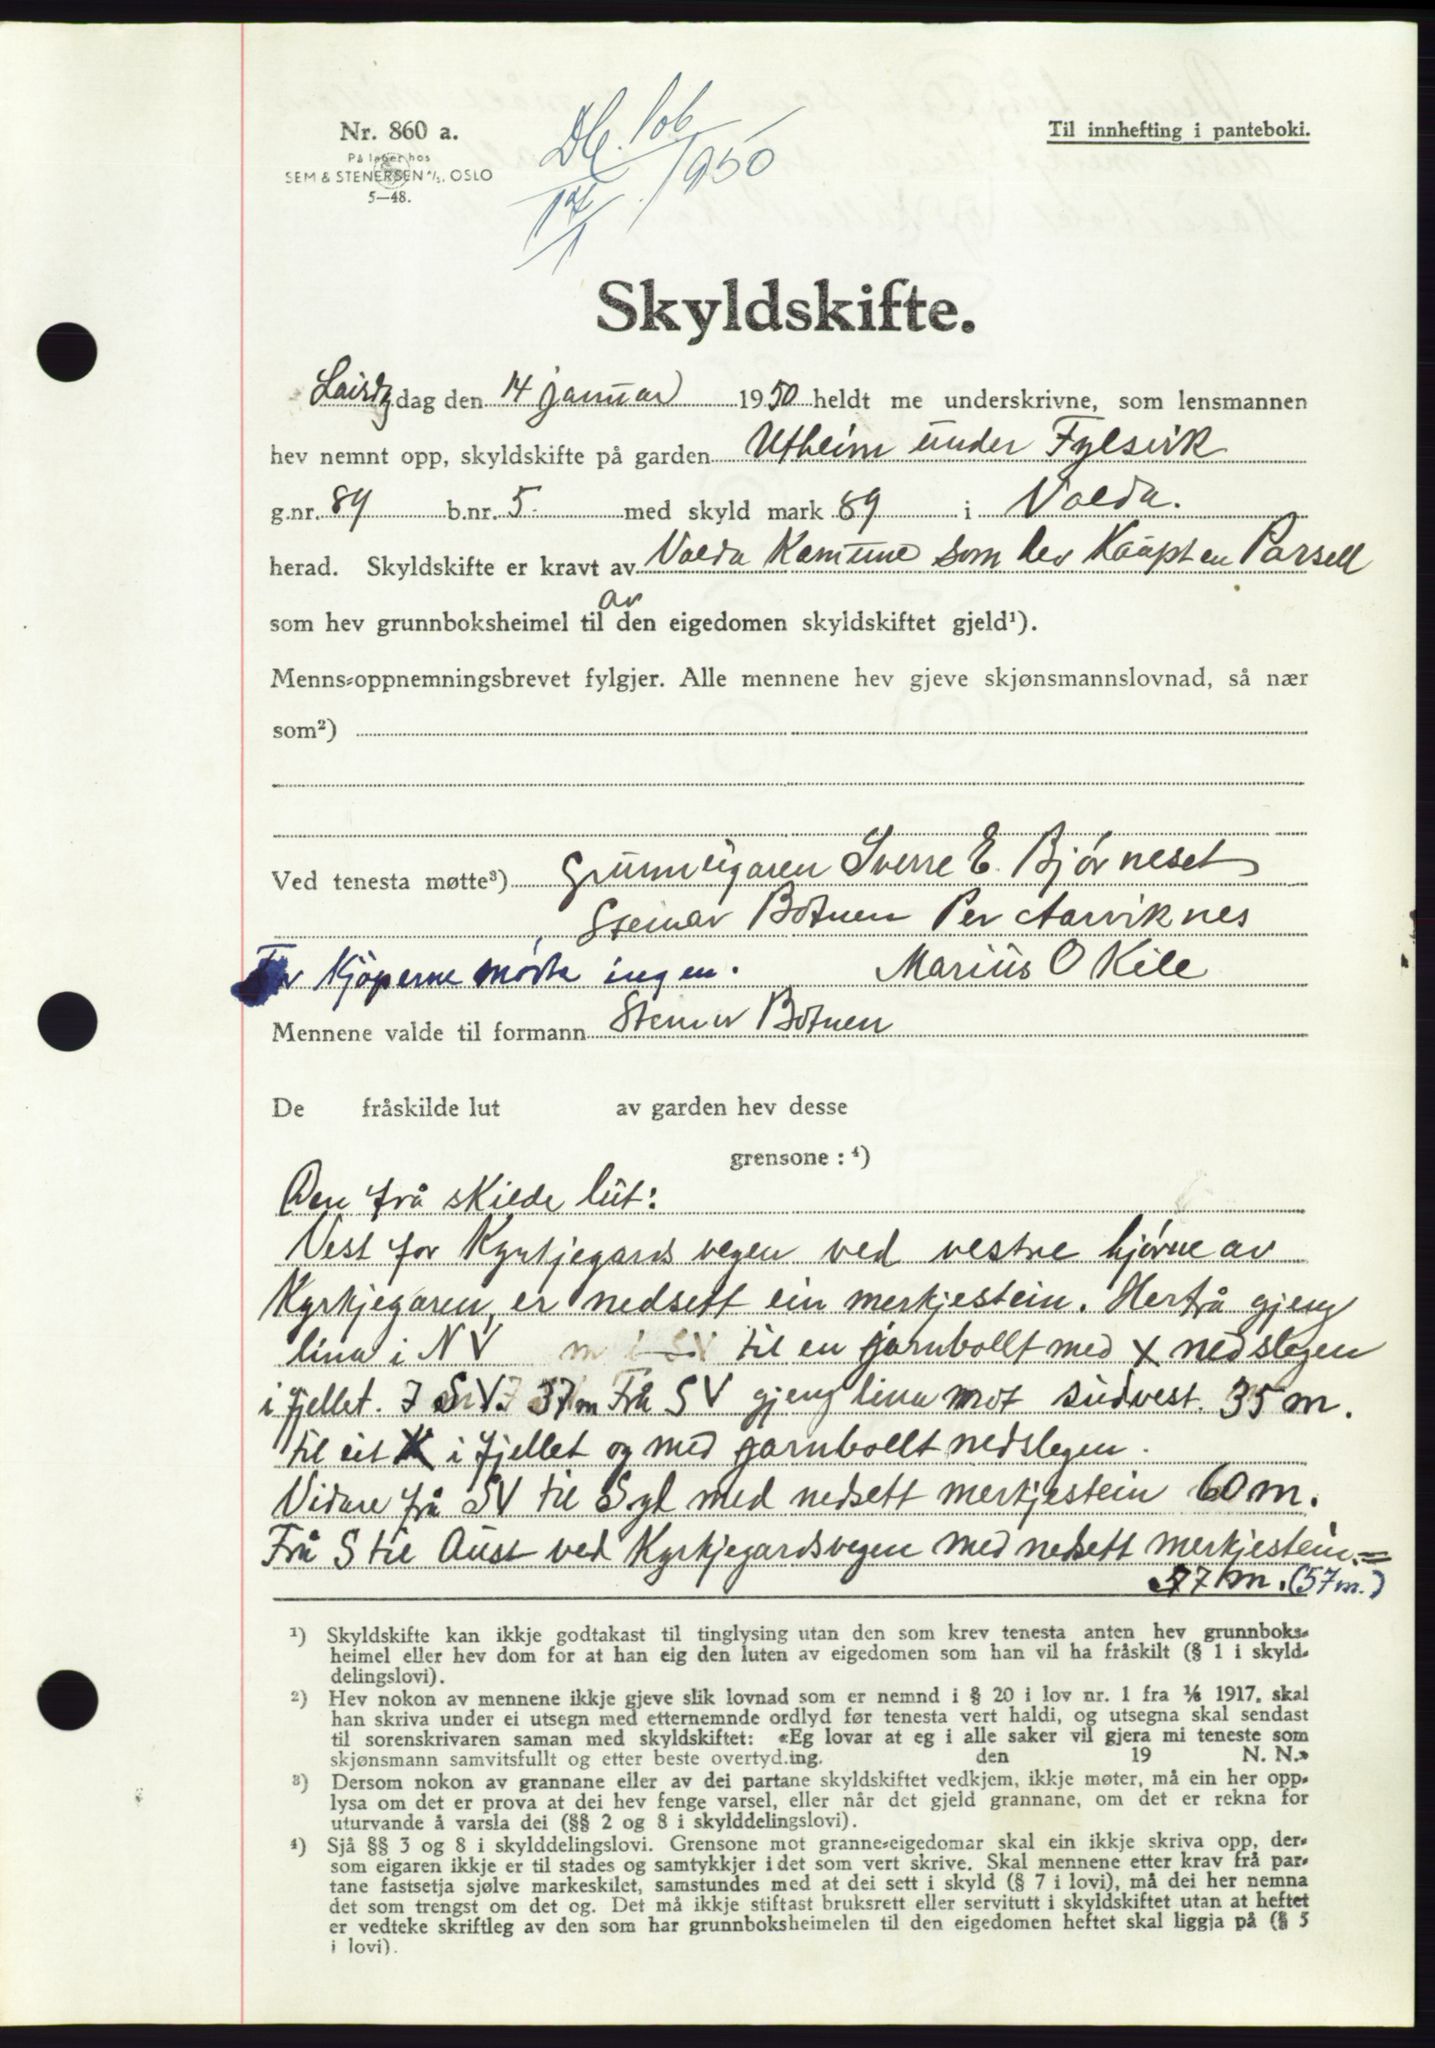 Nr. 860 a.
På lager hos
SEM & STENERSEN A/S. OSLO
5—48.
Db. 106
17/1 1950
Til innhefting i panteboki.
Skyldskifte.
dag den 14 januar 1950 heldt me underskrivne, som lensmannen
hev nemnt opp, skyldskifte på garden Utheim under Fylsvik
g.nr. 89 b.nr. 5. med skyld mark 89 i Volda.
herad. Skyldskifte er kravt av Volda Komune som hev Kaupt en Parsell
av
som hev grunnboksheimel til den eigedomen skyldskiftet gjeld¹).
Menns-oppnemningsbrevet fylgjer. Alle mennene hev gjeve skjønsmannslovnad, så nær
som²)
Ved tenesta møtte³) Grunneigaren Sverre E. Bjørneset
Steinar Botnen Per Aarviknes
For Kjöperne mödte ingen. Marius O Kile
Mennene valde til formann Steinar Botnen
De fråskilde lut av garden hev desse
grensone : ⁴)
Den frå skilde lut:
Vest for Kyrkjegards vegen ved vestre hjörne av
Kyrkjegaren, er nedsett ein merkjestein. Herfrå gjeng
lina i NV m i SV til en jarnbollt med x nedslegen
i fjellet. I SV. 37m Frå SV gjeng lina mot südvest. 35 m.
til eit X i fjellet og med jarnbollt nedslegen.
Vidare frå SV til Syd med nedsett merkjestein 60 m.
Frå S til Aust ved Kyrkjegardsvegen med nedsett merkjestein.=
57 m. (57 m.)
¹) Skyldskifte kan ikkje godtakast til tinglysing utan den som krev tenesta anten hev grunnboks-
heimel eller hev dom for at han eig den luten av eigedomen som han vil ha fråskilt (§ 1 i skyld-
delingslovi).
²) Hev nokon av mennene ikkje gjeve slik lovnad som er nemnd i § 20 i lov nr. 1 fra 1/6 1917, skal
han skriva under ei utsegn med etternemnde ordlyd før tenesta vert haldi, og utsegna skal sendast
til sorenskrivaren saman med skyldskiftet: «Eg lovar at eg i alle saker vil gjera mi teneste som
skjønsmann samvitsfullt og etter beste overtyd.ing. den 19 N. N.»
³) Dersom nokon av grannane eller av dei partane skyldskiftet vedkjem, ikkje møter, må ein her opp-
lysa om det er prova at dei hev fenge varsel, eller når det gjeld grannane, om det er rekna for
uturvande å varsla dei (§§ 2 og 8 i skylddelingslovi).
⁴) Sjå §§ 3 og 8 i skylddelingslovi. Grensone mot granne-eigedomar skal ein ikkje skriva opp, der-
som eigaren ikkje er til stades og samtykkjer i det som vert skrive. Skal mennene etter krav frå par-
tane fastsetja sjølve markeskilet, samstundes med at dei sett i skyld (§ 7 i lovi), må dei her nemna
det som trengst om det og. Det må ikkje stiftast bruksrett eller servitutt i skyldskiftet utan at heftet
er vedteke skriftleg av den som har grunnboksheimelen til den eigedomen heftet skal liggja på (§ 5
i lovi).